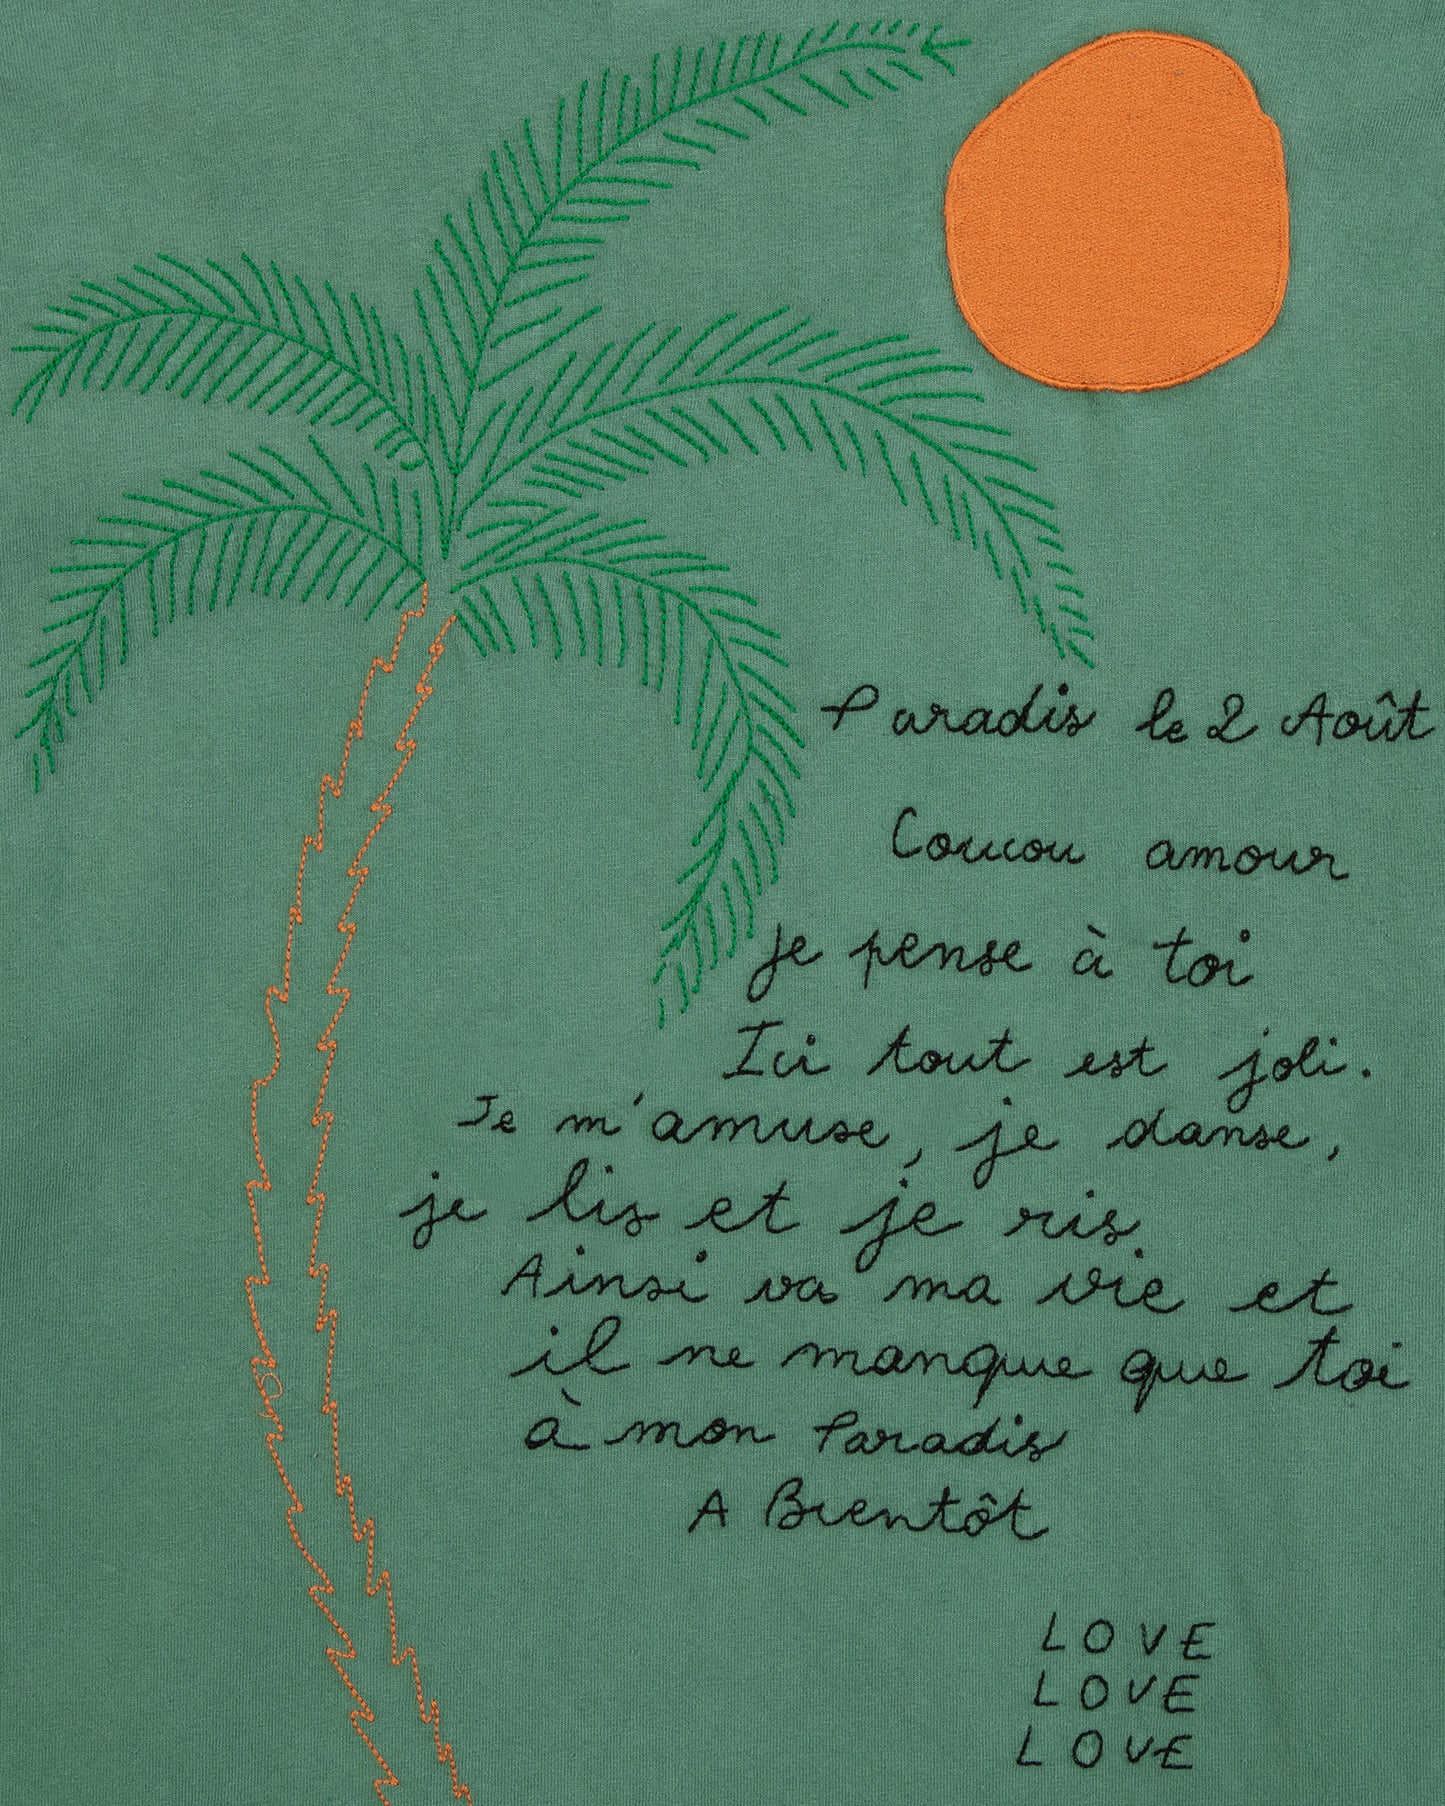 Paradis le 2 Août
Coucou amour
je pense à toi
Ici tout est joli.
Je m'amuse, je danse,
je lis et je ris.
Ainsi va ma vie et
il ne manque que toi
à mon Paradis
A Bientôt
LOVE
LOVE
LOVE